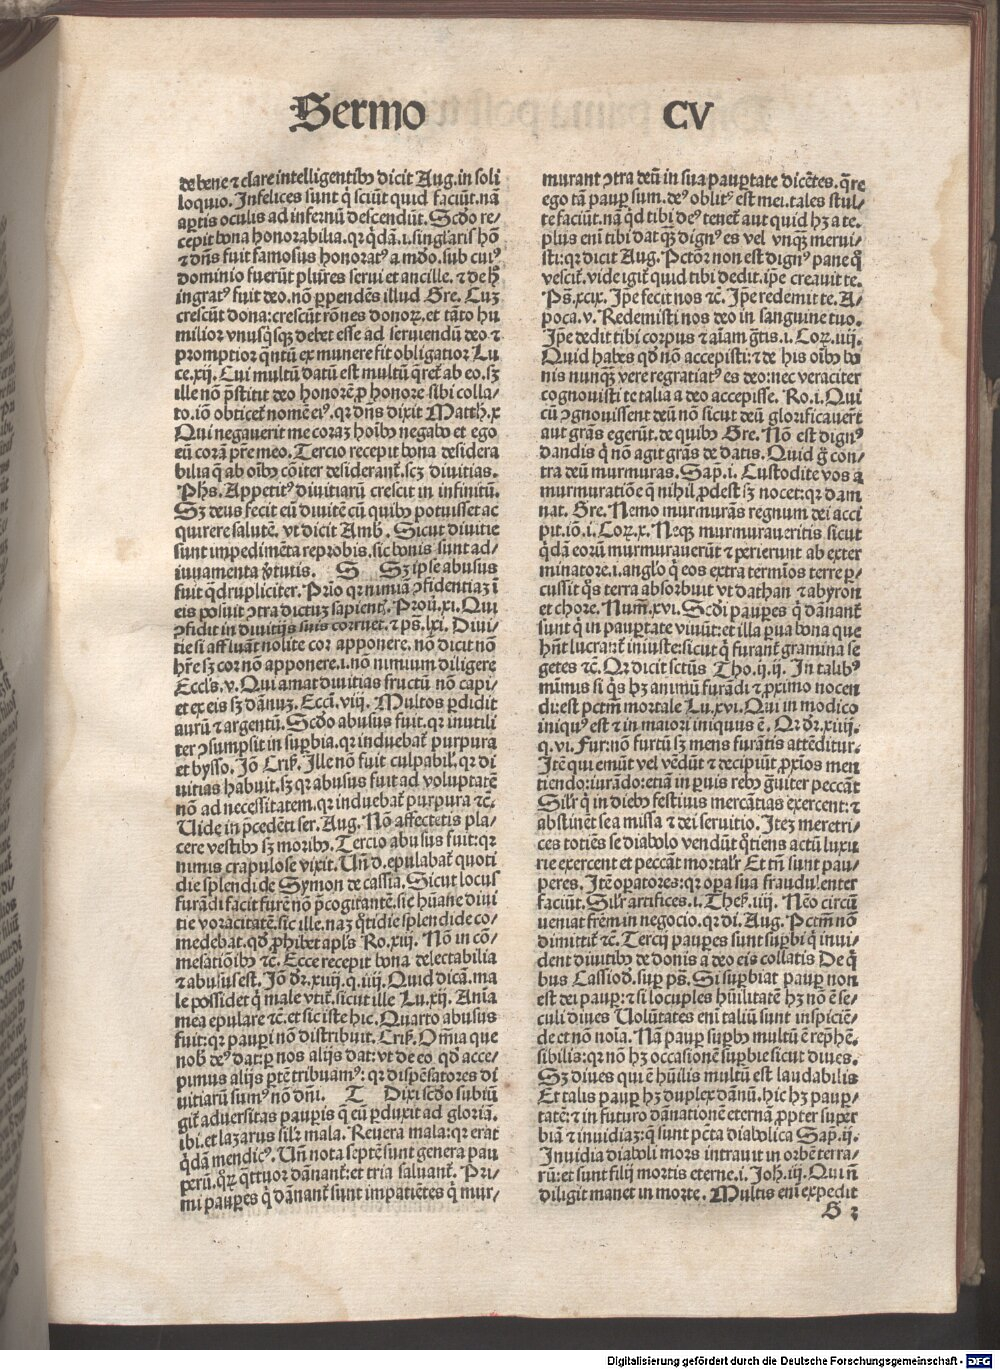 Sermo CV
de bene ⁊ clare intelligentibꝰ dicit Aug. in soli
loquio. Infelices sunt q̇ sciūt quid faciūt. nā
aꝑtis oculis ad infernū descendūt. Scḋo re-
cepit bona honorabilia. qꝛ q̇dā .i. singłaris hō
⁊ dn̄s fuit famosus honoratꝰ a mḋo. sub cuiꝰ
dominio fuerūt plures serui et ancille. ⁊ de h̄
ingratꝰ fuit deo. nō ꝑpendēs illud Gre. Cuȝ
crescūt dona: crescūt rōnes donoꝝ. et tāto hu
milior vnusq̇sqȝ debet esse ad seruiendū deo ⁊
promptior q̄ntū ex munere fit obligatior Lu
ce. xij. Cui multū datū est multū q̄ret᷑ ab eo. sȝ
ille nō p̄stitit deo honorē ꝓ honore sibi colla-
to. iō obticet᷑ nomē eiꝰ. qꝛ dn̄s dixit Matth. x
Qui negauerit me coraȝ hoībꝰ negabo et ego
eū corā pr̄e meo. Tercio recepit bona desidera
bilia q̄ ab oībꝰ cōiter desiderant᷑. scȝ diuitias.
Ph̄s. Appetitꝰ diuitiarū crescit in infinitū.
Sȝ deus fecit eū diuitē cū quibꝰ potuisset ac
quirere salutē. vt dicit Amb. Sicut diuitie
sunt impedimēta reprobis. sic bonis sunt ad-
iuuamenta v̓tutis. S Sȝ ipse abusus
fuit q̇drupliciter. Prīo qꝛ nimiā ꝯfidentiaȝ ī
eis posuit ꝯtra dictuȝ sapientꝭ. Prou̓. xi. Qui
ꝯfidit in diuitijs suis corruet. ⁊ ps̄. lxi. Diui-
tie si affluāt nolite cor apponere. nō dicit nō
hr̄e sȝ cor nō apponere .i. nō nimium diligere
Eccl̄s. v. Qui amat diuitias fructū nō capi-
et ex eis sȝ dānuȝ. Ecci. viij. Multos ꝑdidit
aurū ⁊ argentū. Scḋo abusus fuit. qꝛ inutili
ter ꝯsumpsit in suꝑbia. qꝛ induebat᷑ purpura
et bysso. Jō Criẜ. Ille nō fuit culpabił. qꝛ di
uitias habuit. sȝ qꝛ abusus fuit ad voluptatē
nō ad necessitatem. qꝛ induebat᷑ purpura ⁊c̄.
Uide in p̄cedēti ser. Aug. Nō affectetis pla-
cere vestibꝰ sȝ moribꝰ. Tercio abusus fuit: qꝛ
nimis crapulose vixit. Un̄ d. epulabat᷑ quoti
die splendide Symon de cassia. Sicut locus
furādi facit furē nō p̄cogitantē. sic hūane diui
tie voracitatē. sic ille. naȝ q̇tidie splendide co-
medebat. qḋ ꝓhibet apl̄s Ro. xiij. Nō in cō-
mesatiōibꝰ ⁊c̄. Ecce recepit bona delectabilia
⁊ abusus est. Jō dr̄. xiiij. q. iiij. Quid dicā. ma
le possidet q̇ male vtit᷑. sicut ille Lu. xij. Aīa
mea epulare ⁊c̄. et sic iste hic. Quarto abusus
fuit: qꝛ pauꝑi nō distribuit. Criẜ. Om̄ia que
nob̄ deꝰ dat: ꝑ nos alijs dat: vt de eo qḋ acce-
pimus alijs ꝑtē tribuamꝰ: qꝛ dispēsatores di
uitiarū sumꝰ nō dn̄i. T Dixi scḋo subiū
git᷑ aduersitas pauꝑis q̄ eū ꝑduxit ad gloriā.
ibi. et lazarus sił̓r mala. Reuera mala: qꝛ erat
q̇dā mendicꝰ. Un̄ nota septē sunt genera pau
ꝑerū. qꝝ q̄ttuor dānant᷑: et tria saluant᷑. Pri-
mi pauꝑes q̇ dānant᷑ sunt impatiētes q̇ mur-
murant ꝯtra deū in sua pauꝑtate dicētes. q̄re
ego tā pauꝑ sum. deꝰ oblitꝰ est mei. tales stul-
te faciūt. nā qḋ tibi deꝰ tenet᷑ aut quid hȝ a te.
plus enī tibi dat qȝ̄ dignꝰ es vel vnqȝ̄ merui-
sti: qꝛ dicit Aug. Pctōr non est dignꝰ pane q̇
vescit᷑. vide igit᷑ quid tibi dedit. ip̄e creauit te.
Ps̄. xcix. Ip̄e fecit nos ⁊c̄. Ip̄e redemit te. A-
poca. v. Redemisti nos deo in sanguine tuo.
Ip̄e dedit tibi corpus ⁊ aīam gr̄tis. i. Coꝝ. iiij.
Quid habes qḋ nō accepisti: ⁊ de his oībꝰ bo
nis nunqȝ̄ vere regratiatꝰ es deo: nec veraciter
cognouisti te talia a deo accepisse. Ro. i. Qui
cū ꝯgnouissent deū nō sicut deū glorificauert᷑
aut gr̄as egerūt. de quibꝰ Gre. Nō est dignꝰ
dandis q̇ nō agit gr̄as de datis. Quid g̊ con
tra deū murmuras. Sap̄. i. Custodite vos a
murmuratiōe q̄ nihil ꝓdest sȝ nocet: qꝛ dam
nat. Gre. Nemo murmurās regnum dei acci
pit. iō. i. Coꝝ. x. Neqȝ murmuraueritis sicut
q̇dā eorū murmurauerūt ⁊ perierunt ab exter
minatore .i. angl̄o q̇ eos extra termīos terre ꝑ-
cussit q̇s terra absorbuit vt dathan ⁊ abyron
et chore. Num̄. xvi. Scḋi pauꝑes q̇ dānant᷑
sunt q̇ in pauꝑtate viuūt: et illa ꝑua bona que
hn̄t lucrant᷑ iniuste: sicut q̇ furant᷑ gramina se
getes ⁊c̄. Qꝛ dicit sctūs Tho. ij. ij. In talibꝰ
minimus si q̇s hȝ animū furādi ⁊ ꝓximo nocen
di: est pctm̄ mortale Lu. xvi. Qui in modico
iniquꝰ est ⁊ in maiori iniquus ē. Qꝛ dr̄. xiiij.
q. vi. Fur: nō furtū sȝ mens furātis attēditur.
Itē qui emūt vel vēdūt ⁊ decipiūt ꝓxīos men
tiendo: iurādo: etiā in ꝑuis rebꝰ g̊uiter peccāt
Sił̓r q̇ in diebꝰ festiuis mercātias exercent: ⁊
abstinēt se a missa ⁊ dei seruitio. Iteȝ meretri-
ces totiēs se diabolo vendūt q̇tiens actū luxu
rie exercent et peccāt mortal̓r Et tn̄ sunt pau-
peres. Itē oꝑatores: qꝛ oꝑa sua fraudulenter
faciūt. Sił̓r artifices. i. Theẜ. iiij. Neꝯ circū
ueniat fr̄em in negocio. qꝛ di. Aug. Pctm̄ nō
dimittit᷑ ⁊c̄. Tercij pauꝑes sunt suꝑbi q̇ inui-
dent diuitibꝰ de donis a deo eis collatis De q̇
bus Cassiod. suꝑ ps̄. Si suꝑbiat pauꝑ non
est dei pauꝑ: ⁊ si locuples hūilitatē hȝ nō ē se-
culi diues Uolūtates enī taliū sunt inspiciē-
de et nō noīa. Nā pauꝑ suꝑbꝰ multū ē rep̄hē-
sibilis: qꝛ nō hȝ occasionē suꝑbie sicut diues.
Sȝ diues qui ē hūilis multū est laudabilis
Et talis pauꝑ hȝ duplex dānū. hic hȝ pauꝑ-
tatē: ⁊ in futuro dānationē eternā ꝓpter super
biā ⁊ inuidiaȝ: q̄ sunt pctā diabolica Sap̄. ij.
Inuidia diaboli mors intrauit in orbē terra-
rū: et sunt filij mortis eterne. i. Joh̄. iij. Qui n̄
diligit manet in morte. Multis enī expedit
S 2
Digitalisierung gefördert durch die Deutsche Forschungsgemeinschaft - DFG